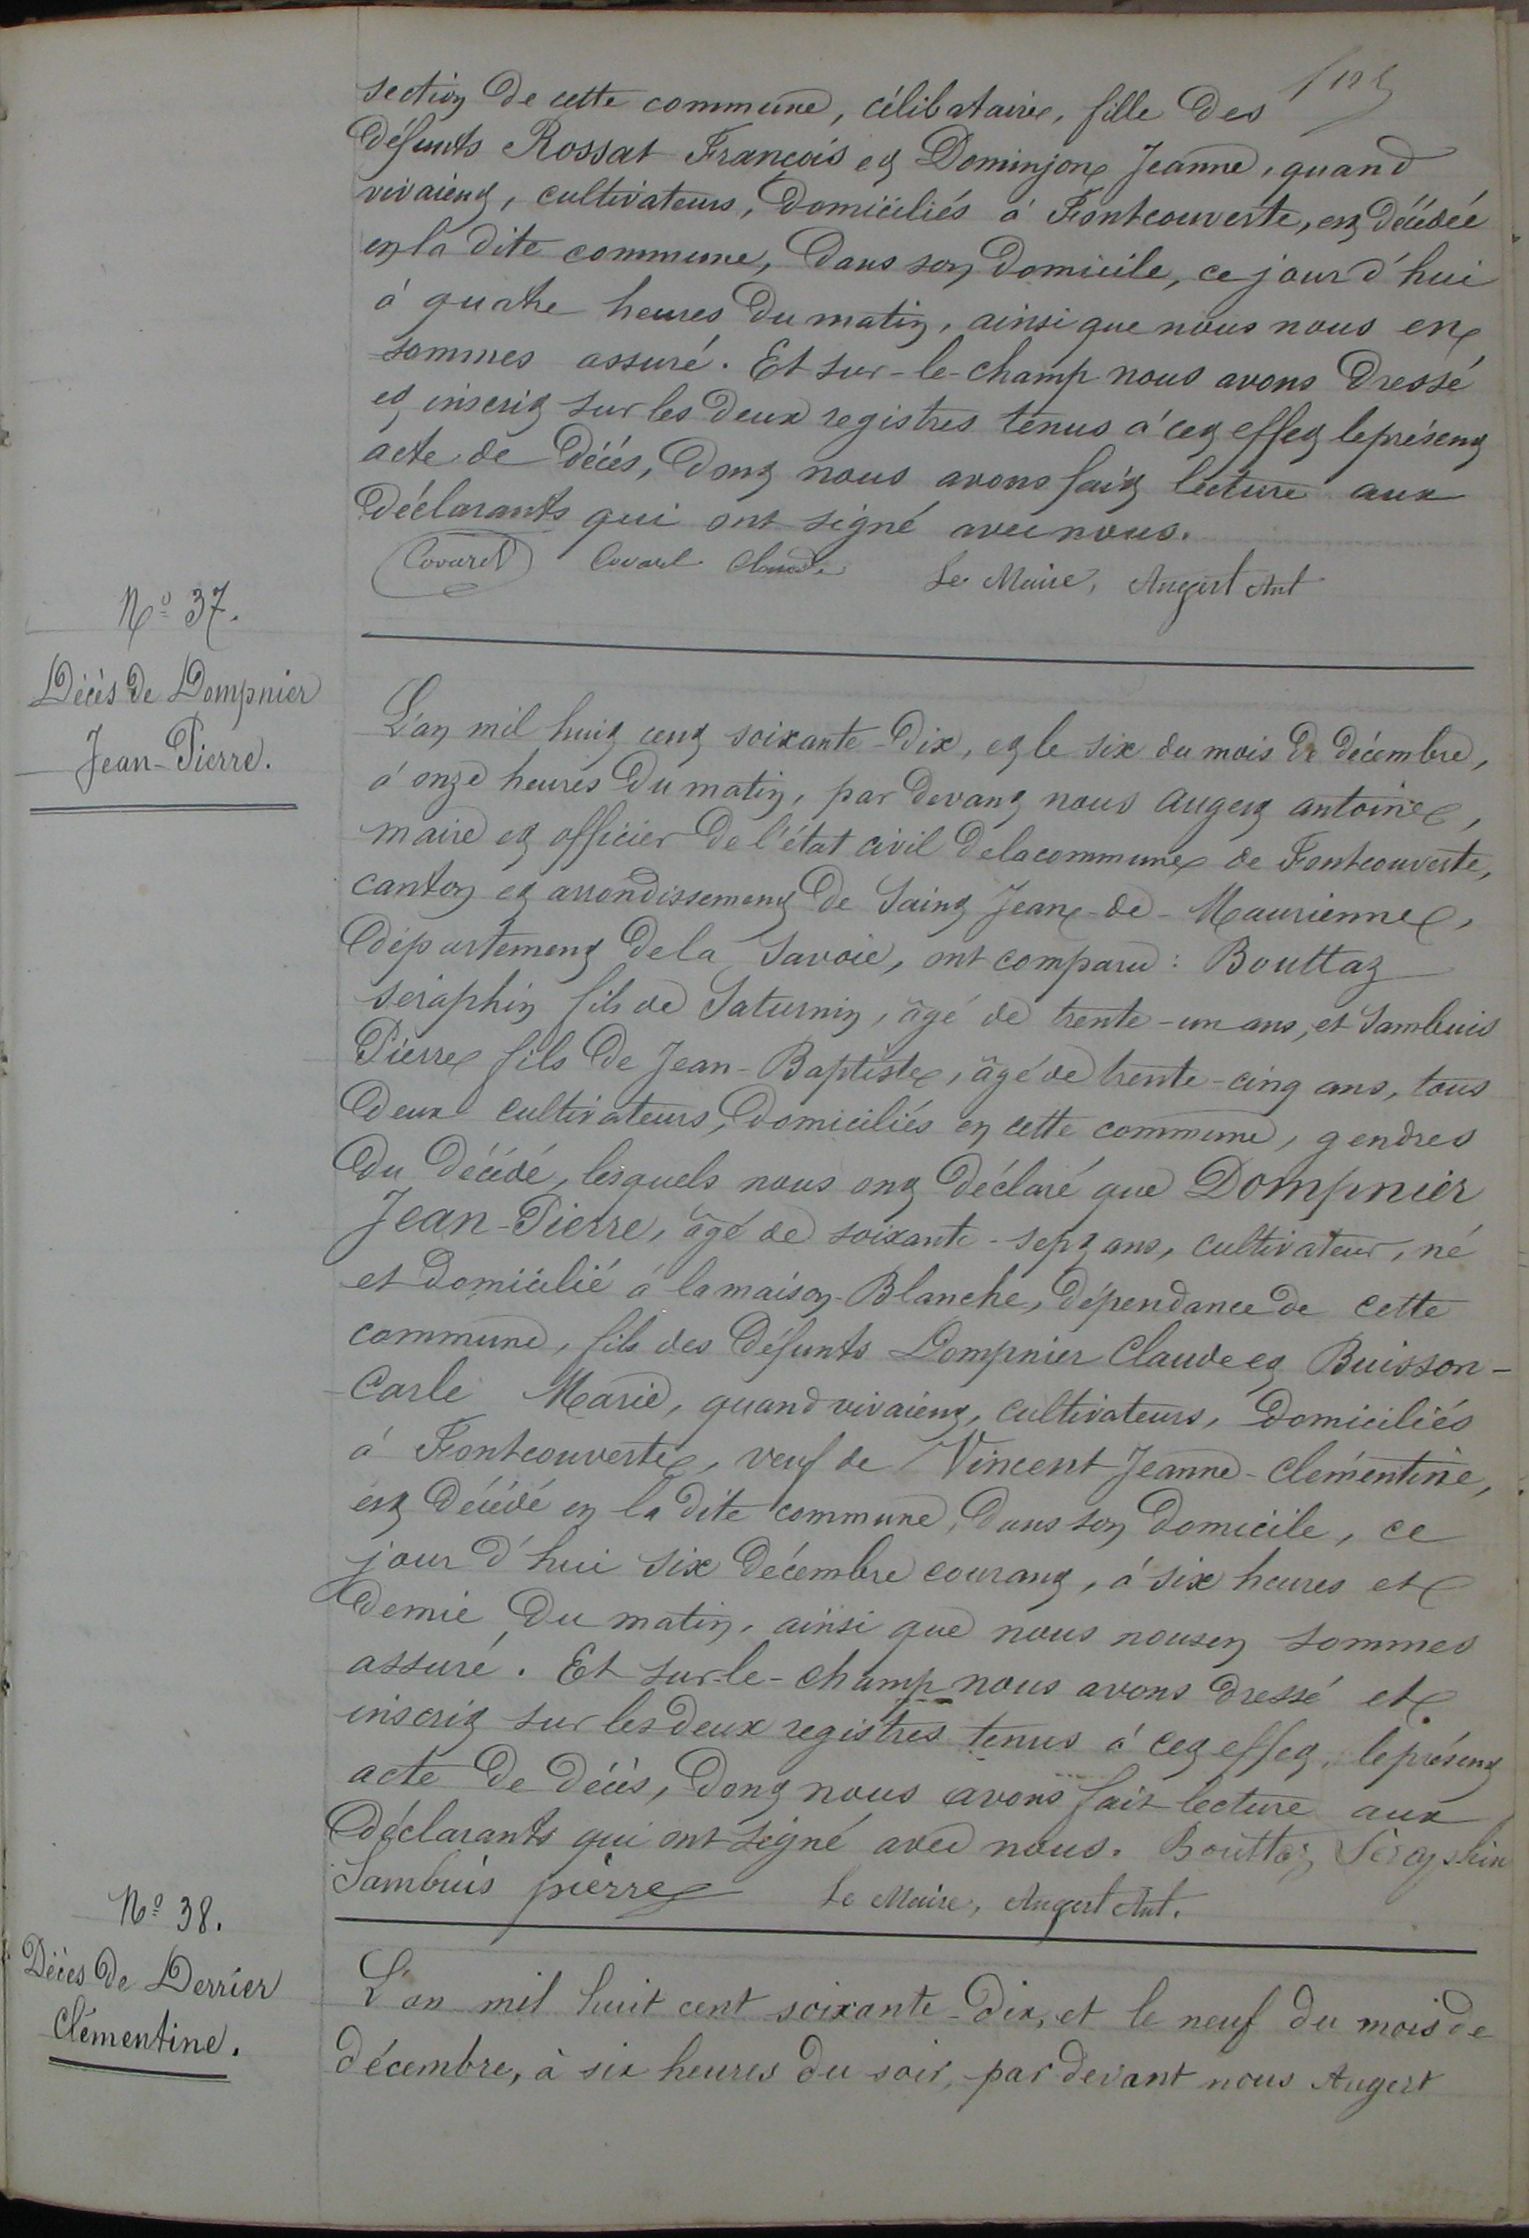 section de cette commune, célibataire, fille des
défunts Rossat François et Dominjon Jeanne, quand
vivaient, cultivateurs, domiciliés à Fontcouverte, est décédée
en la dite commune, dans son domicile, ce jour d'hui
à quatre heures du matin, ainsi que nous nous en
sommes assuré. Et sur-le-champ nous avons dressé
et inscrit sur les deux registres tenus à cet effet le présent
acte de décès, dont nous avons fait lecture aux
déclarants qui ont signé avec nous.
Covarel Covarel Claude Le Maire, Augert Ant
No 37.
Décès de Dompnier
Jean-Pierre.
L'an mil huit cent soixante-dix, et le six du mois de décembre,
à onze heures du matin, par devant nous augert antoine,
maire et officier de l'état civil de la commune de Fontcouverte,
canton et arrondissement de Saint Jean-de-Maurienne,
département de la Savoie, ont comparu : Bouttaz
seraphin fils de Saturnin, âgé de trente-un ans, et Sambuis
Pierre fils de Jean-Baptiste, âgé de trente-cinq ans, tous
deux cultivateurs, domiciliés en cette commune, gendres
du décédé, lesquels nous ont déclaré que Dompnier
Jean-Pierre, âgé de soixante-sept ans, cultivateur, né
et domicilié à la maison-Blanche, dépendance de cette
commune, fils des défunts Dompnier Claude et Buisson-
-Carle Marie, quand vivaient, cultivateurs, domiciliés
à Fontcouverte, veuf de Vincent Jeanne-Clémentine,
est décédé en la dite commune, dans son domicile, ce
jour d'hui six décembre courant, à six heures et
demie du matin, ainsi que nous nous en sommes
assuré. Et sur-le-champ nous avons dressé et
inscrit sur les deux registres tenus à cet effet, le présent
acte de décès, dont nous avons fait lecture aux
déclarants qui ont signé avec nous. Bouttaz Séraphin
Sambuis pierre Le Maire, Augert Ant.
No 38.
Décès de Derrier
Clémentine.
L'an mil huit cent soixante-dix, et le neuf du mois de
décembre, à six heures du soir, par devant nous Augert